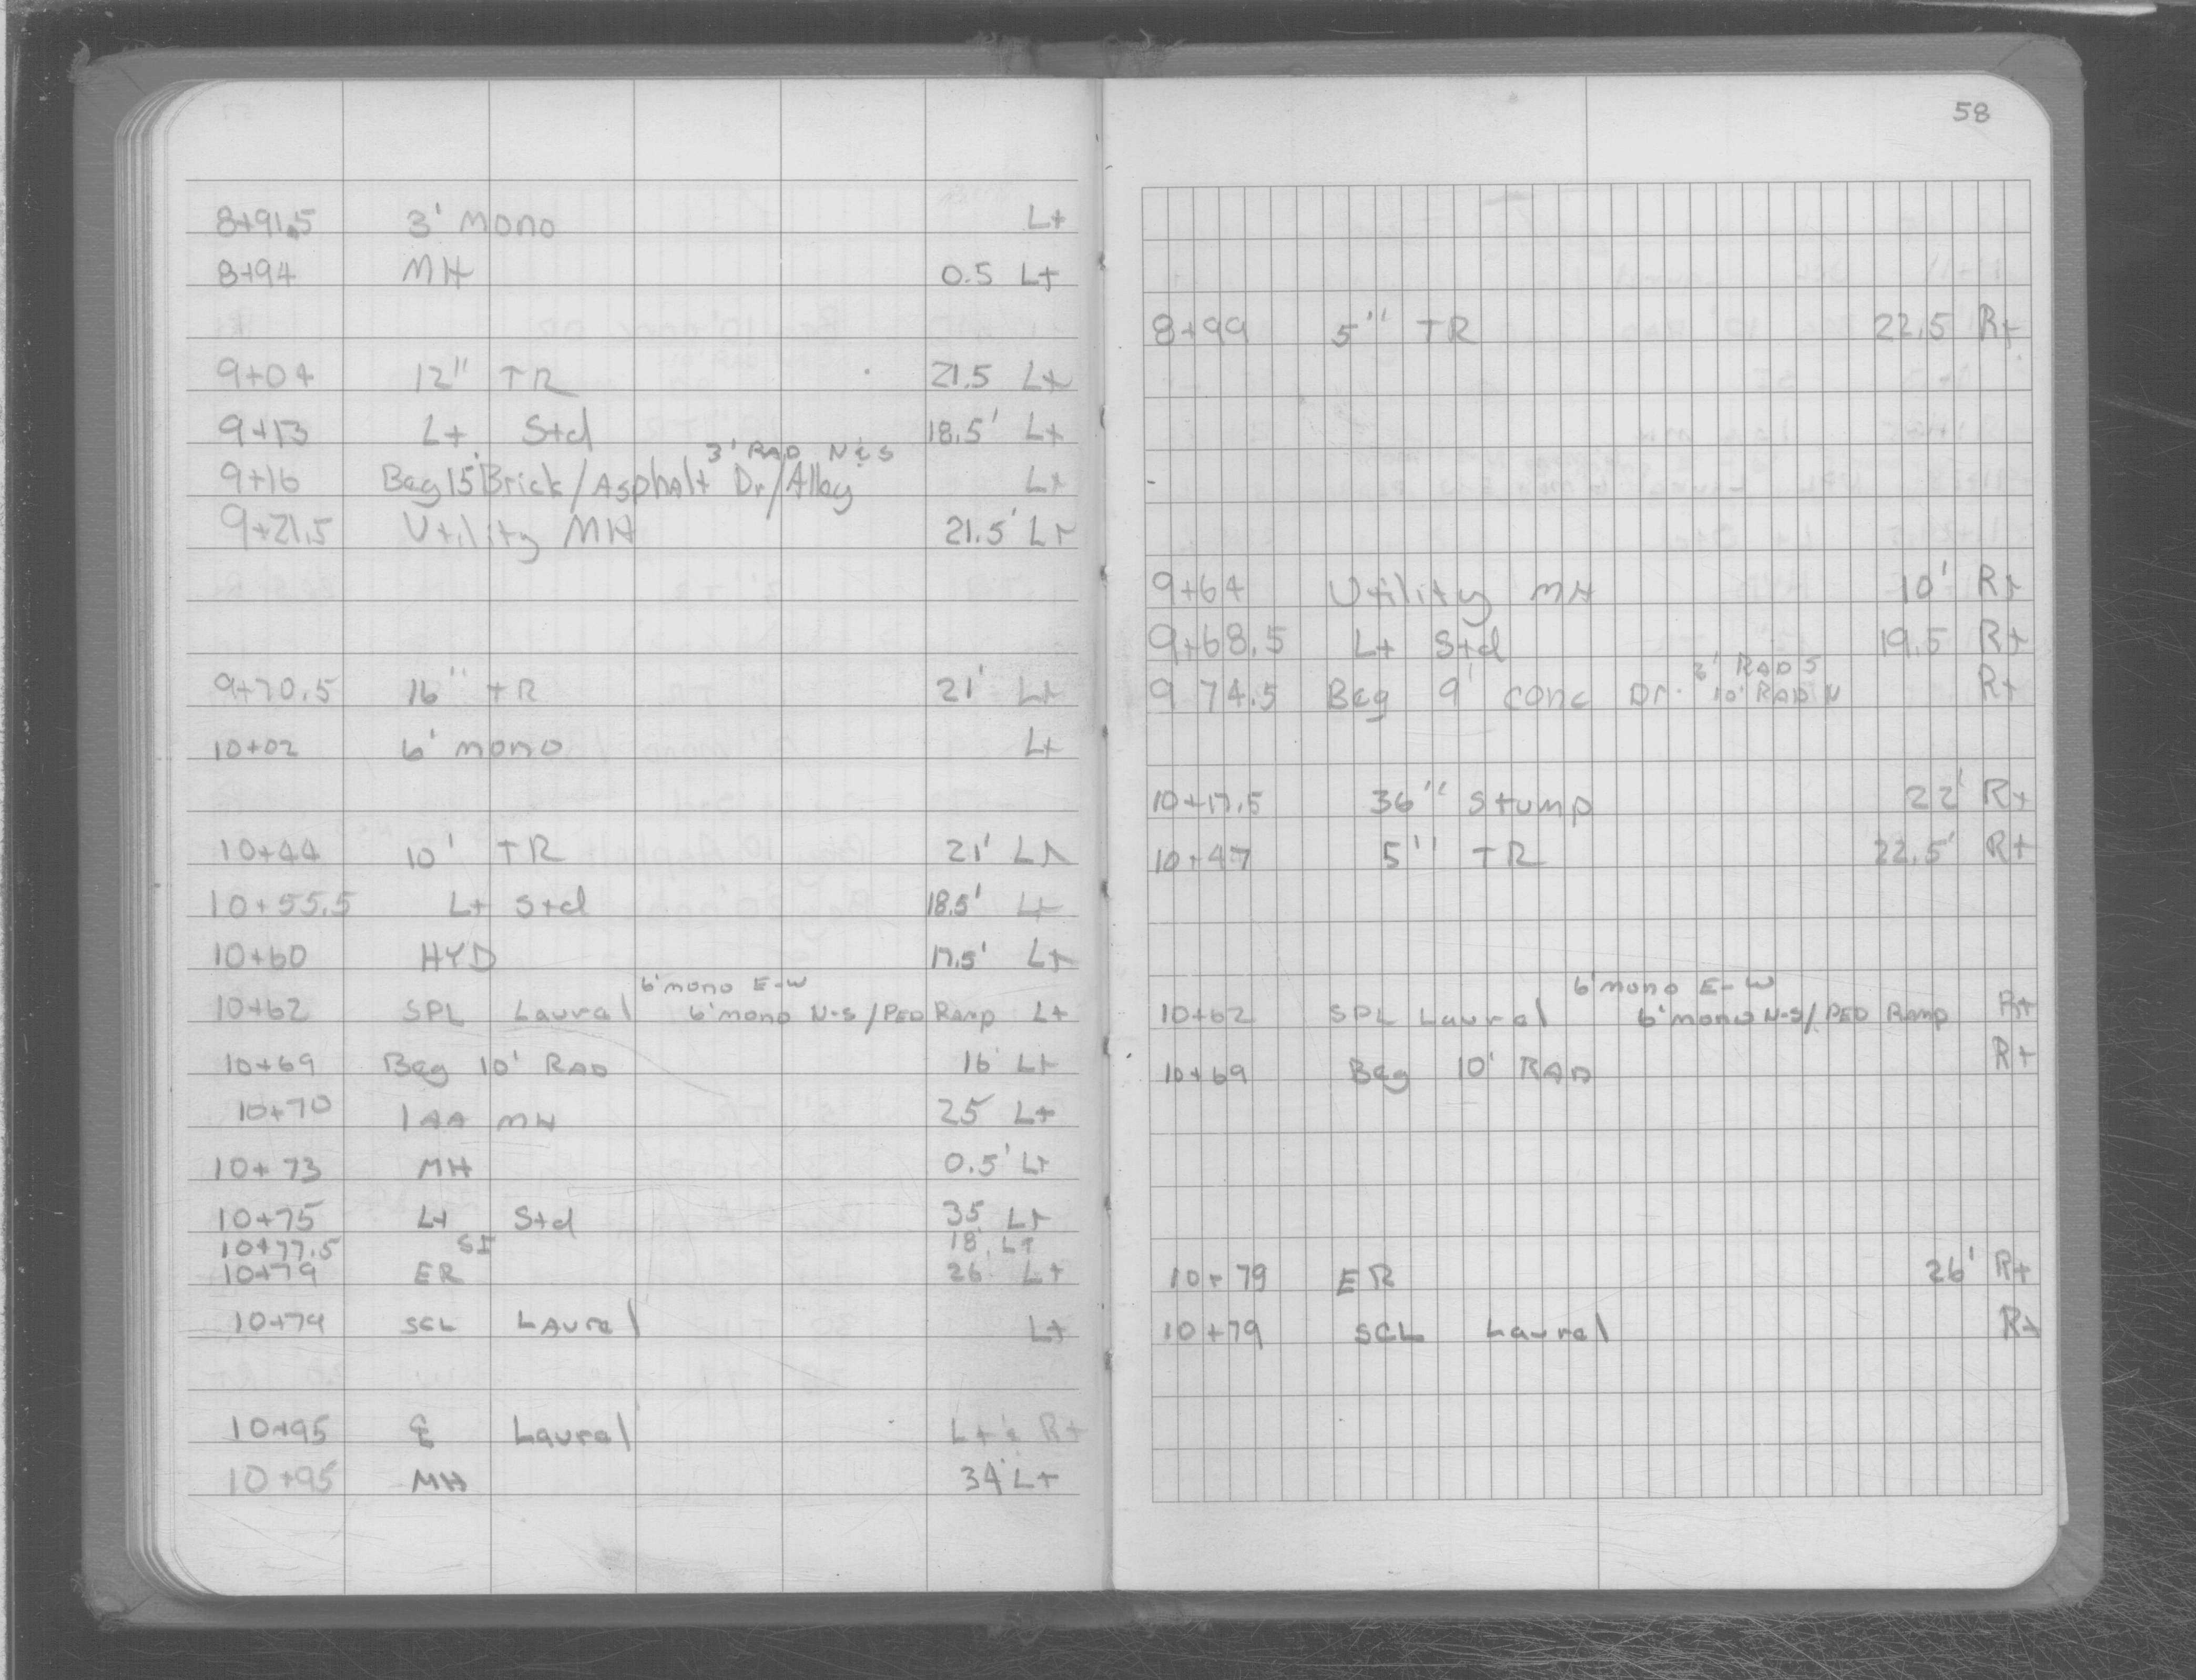 8+91.5 3' mono Lt
8+94 MH 0.5 Lt
9+04 12" TR 21.5 Lt
9+13 Lt Std 18.5' Lt
3' RAD N&S
9+16 Beg 15' Brick/Asphalt Dr/Alley Lt
9+21.5 Utility MH 21.5' Lt
9+70.5 16" TR 21' Lt
10+02 6' mono Lt
10+44 10' TR 21' Lt
10+55.5 Lt Std 18.5' Lt
10+60 HYD 17.5' Lt
6' mono E-W
10+62 SPL Laurel 6' mono N-S/PED Ramp Lt
10+69 Beg 10' RAD 16' Lt
10+70 1AA MH 25 Lt
10+73 MH 0.5' Lt
10+75 Lt Std 35 Lt
10+77.5 SI 18' Lt
10+79 ER 26 Lt
10+79 SCL Laurel Lt
10+95 ℄ Laurel Lt & Rt
10+95 MH 34' Lt
58
8+99 5" TR 22.5 Rt
9+64 Utility MH 10' Rt
9+68.5 Lt Std 19.5 Rt
3' RAD S
9 74.5 Beg 9' conc Dr. 10' RAD N Rt
10+17.5 36" Stump 22' Rt
10+47 5" TR 22.5' Rt
6' mono E-W
10+62 SPL Laurel 6' mono N-S/PED Ramp Rt
10+69 Beg 10' RAD Rt
10+79 ER 26' Rt
10+79 SCL Laurel Rt